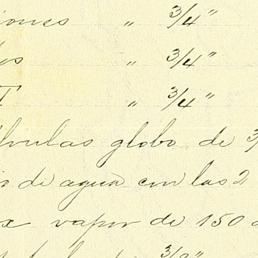 iones " 3/4"
los " 3/4"
T " 3/4"
lvulas globo de 3/
de agua con las 2
x vapor de 150
3/8"